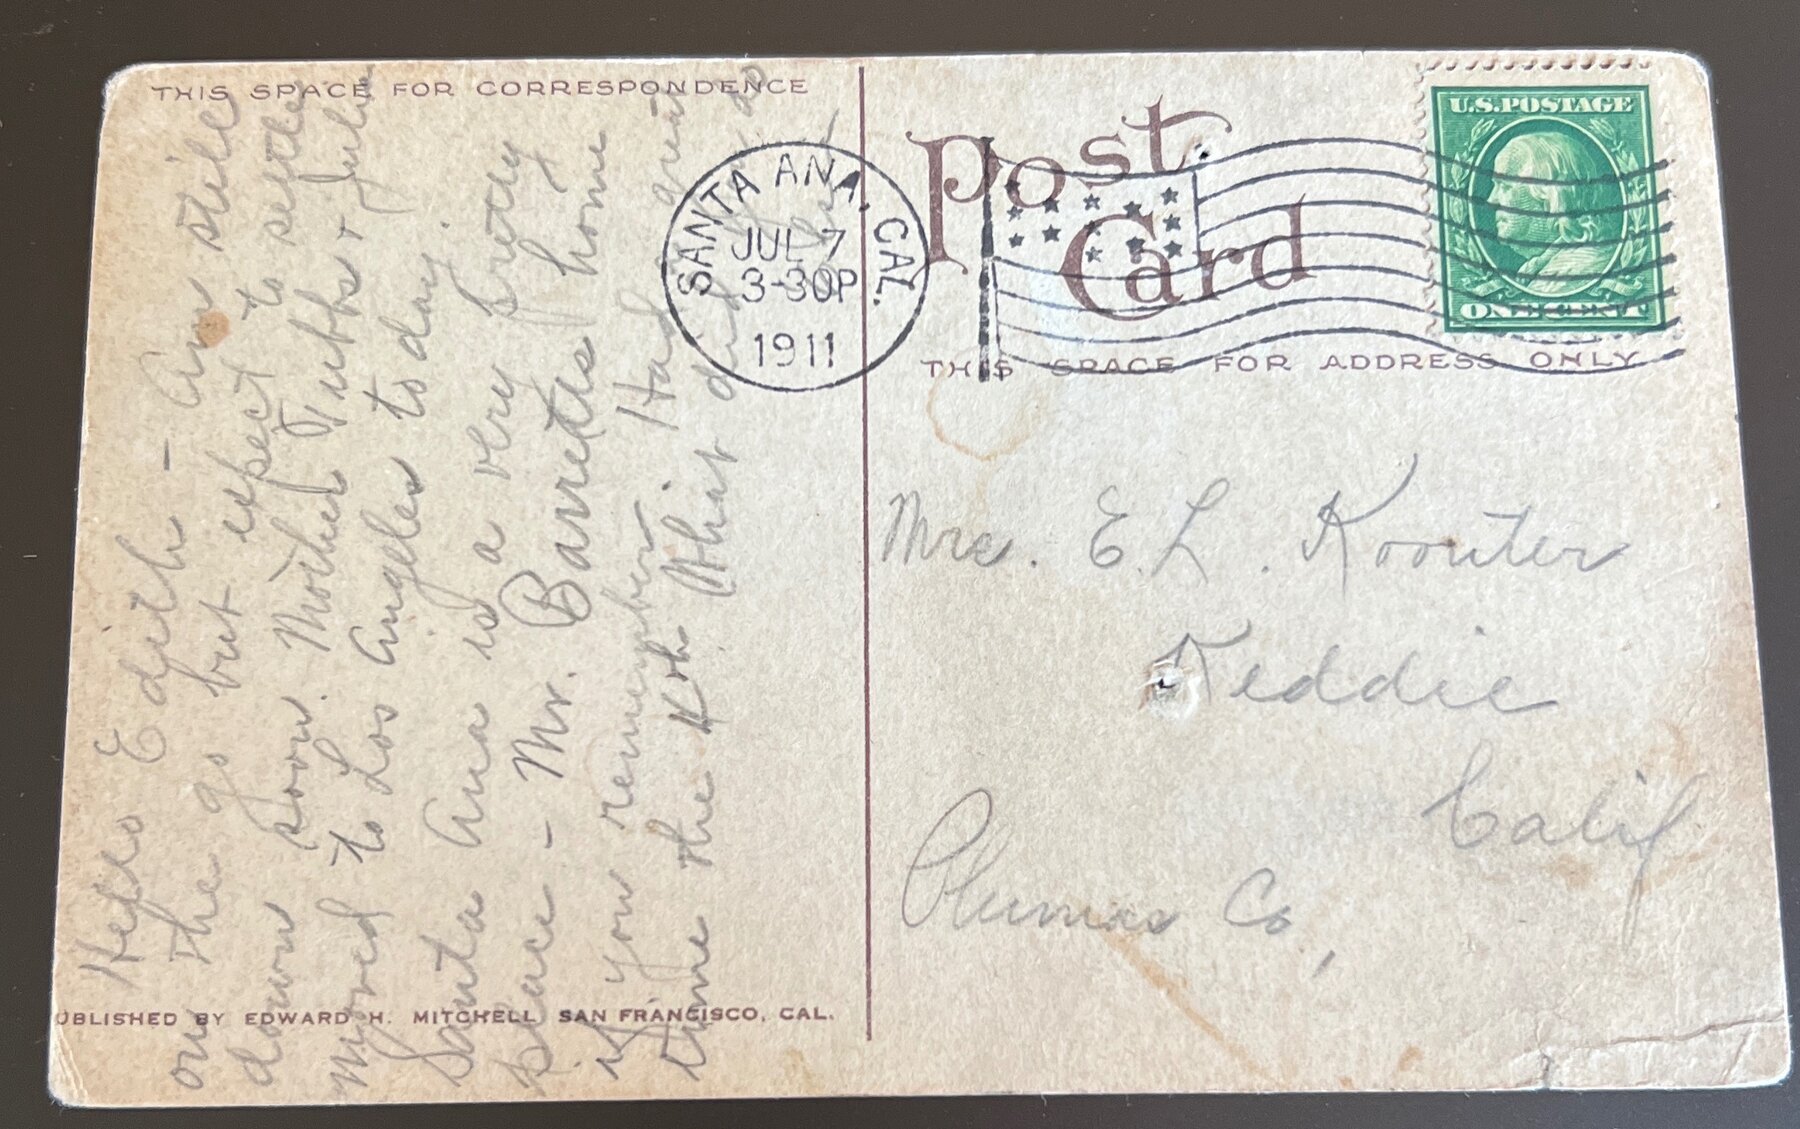 THIS SPACE FOR CORRESPONDENCE
Hello Edith - Am still
on the go but expect to settle
down soon. Mother Tubbs + Julia
moved to Los Angeles to day.
Santa Ana is a very pretty
place - Mr. Barrette's home
if you remember. Had great
time the 4th What did you do
PUBLISHED BY EDWARD H. MITCHELL SAN FRANCISCO, CAL.
Post
Card
SANTA ANA, CAL.
JUL 7
3-30P
1911
U.S. POSTAGE
ONE CENT
THIS SPACE FOR ADDRESS ONLY
Mrs. E. L. Koonter
Keddie
Calif
Plumas Co.,